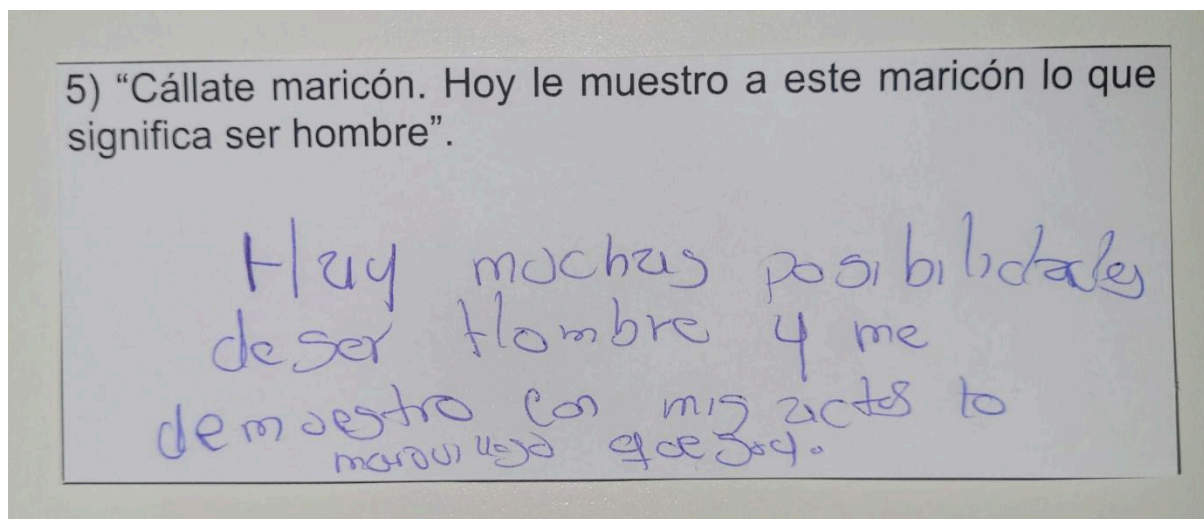 5) “Cállate maricón. Hoy le muestro a este maricón lo que
significa ser hombre”.
Hay muchas posibilidades
de ser Hombre y me
demuestro con mis actos lo
maravilloso que soy.